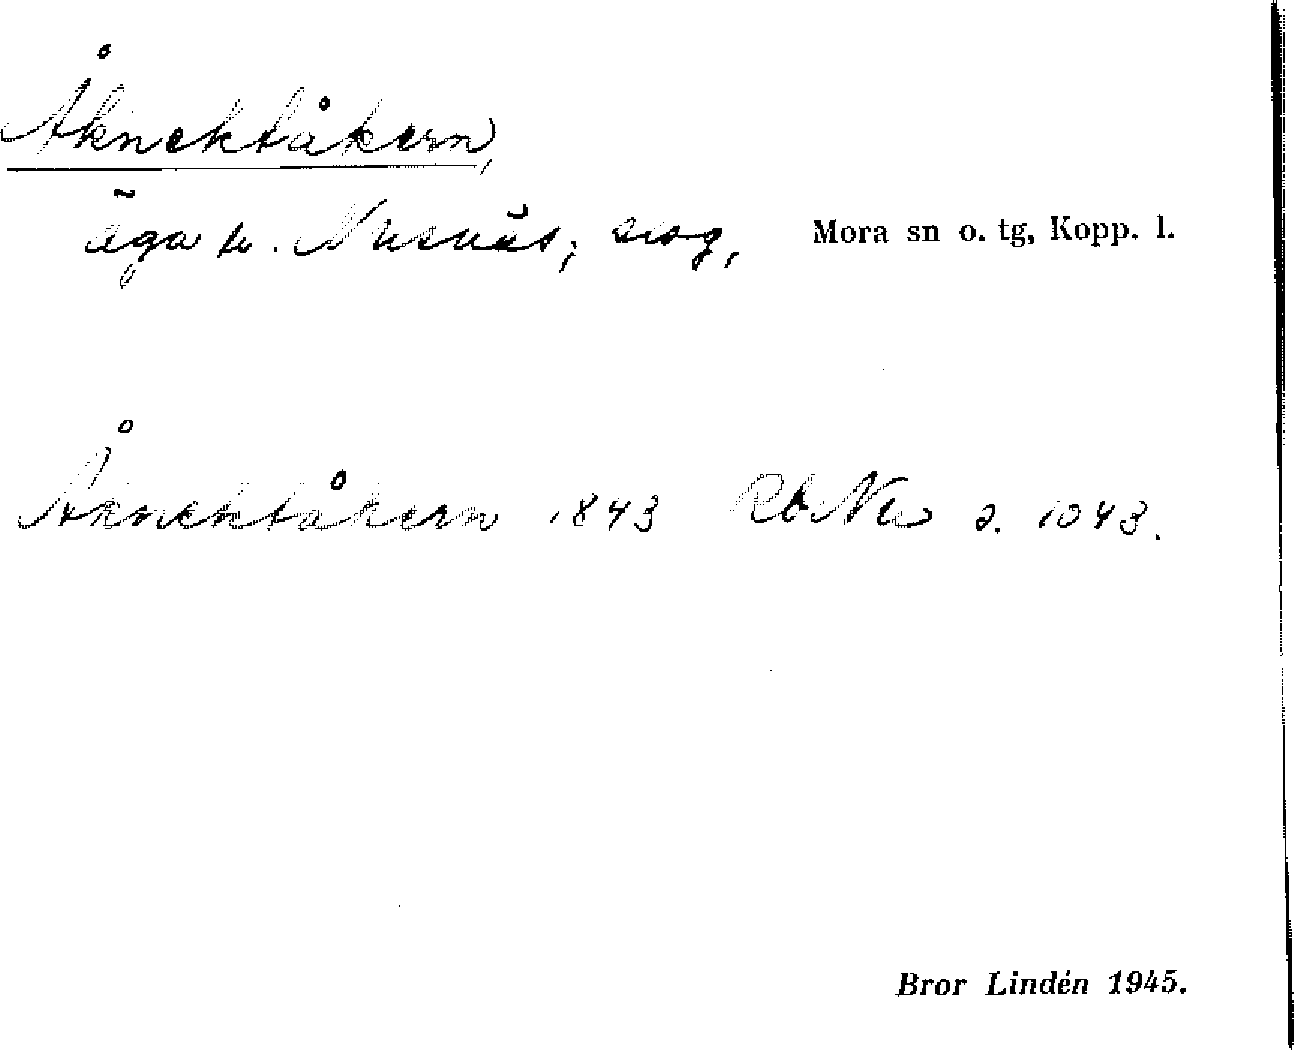 Åknektåkern,
äga t. Nusnäs, snog, Mora sn o. tg, Kopp. l.
Åknektåkern 1843 RbNu s. 1043.
Bror Lindén 1945.